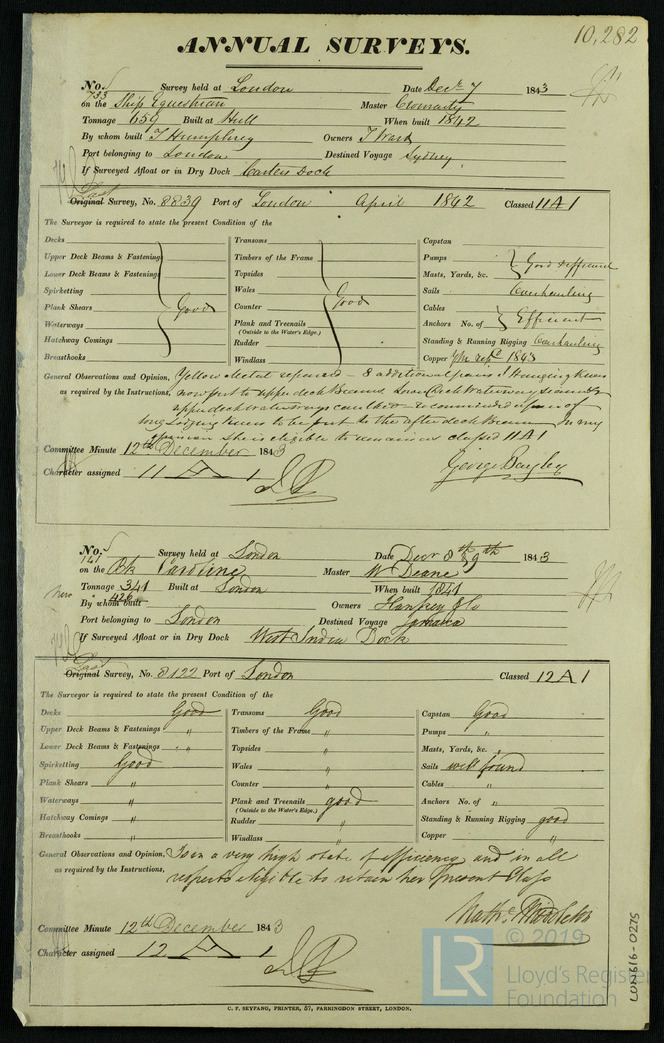 10,282
ANNUAL SURVEYS.
No. 733 Survey held at London Date Decr 7 1843
on the Ship Equestrian Master Cromarty
Tonnage 659 Built at Hull When built 1842
By whom built T Humphrey Owners T Ward
Port belonging to London Destined Voyage Sydney.
If Surveyed Afloat or in Dry Dock Carters Dock
Last
Original Survey, No. 8839 Port of London April 1842 Classed 11 A 1
The Surveyor is required to state the present Condition of the
Decks
Upper Deck Beams & Fastenings
Lower Deck Beams & Fastenings
Spirketting
Plank Shears Good
Waterways
Hatchway Comings
Breasthooks
Transoms
Timbers of the Frame
Topsides
Wales
Counter Good
Plank and Treenails
(Outside to the Water's Edge.)
Rudder
Windlass
Capstan
Pumps Good & efficient
Masts, Yards, &c.
Sails Overhauling
Cables
Anchors No. of Efficient
Standing & Running Rigging Overhauling
Copper 1843
General Observations and Opinion, Yellow Metal repaired – 8 additional pairs of Hanging Knees
as required by the Instructions, now put to upper deck Beams. Lower Deck Waterway seams &
upper deck waterways caulked – recommended of
long Lodging Knees to be put to the after deck Beams – In my
opinion she is eligible to remain as classed 11 A 1
Committee Minute 12th December 1843
Character assigned 11 A 1
George Bayley
No. 141 Survey held at London Date Decr 8th & 9th 1843
on the Bk Caroline Master W Deane
Tonnage 341 Built at London When built 1841
428
By whom built Owners Hankey & Co
Port belonging to London Destined Voyage Jamaica
If Surveyed Afloat or in Dry Dock West India Dock
Last
Original Survey, No. 8122 Port of London Classed 12 A 1
The Surveyor is required to state the present Condition of the
Decks Good
Upper Deck Beams & Fastenings "
Lower Deck Beams & Fastenings "
Spirketting Good
Plank Shears "
Waterways "
Hatchway Comings "
Breasthooks "
Transoms Good
Timbers of the Frame "
Topsides "
Wales "
Counter "
Plank and Treenails good
(Outside to the Water's Edge.)
Rudder "
Windlass "
Capstan Good
Pumps "
Masts, Yards, &c. "
Sails well found
Cables "
Anchors No. of "
Standing & Running Rigging good
Copper "
General Observations and Opinion, Is in a very high state of efficiency and in all
as required by the Instructions, respects eligible to retain her present Class
Nathl Middleton
Committee Minute 12th December 1843
Character assigned 12 A 1
C. F. SEYFANG, PRINTER, 57, FARRINGDON STREET, LONDON.
LON616-0275
LR © 2019
Lloyd's Register
Foundation